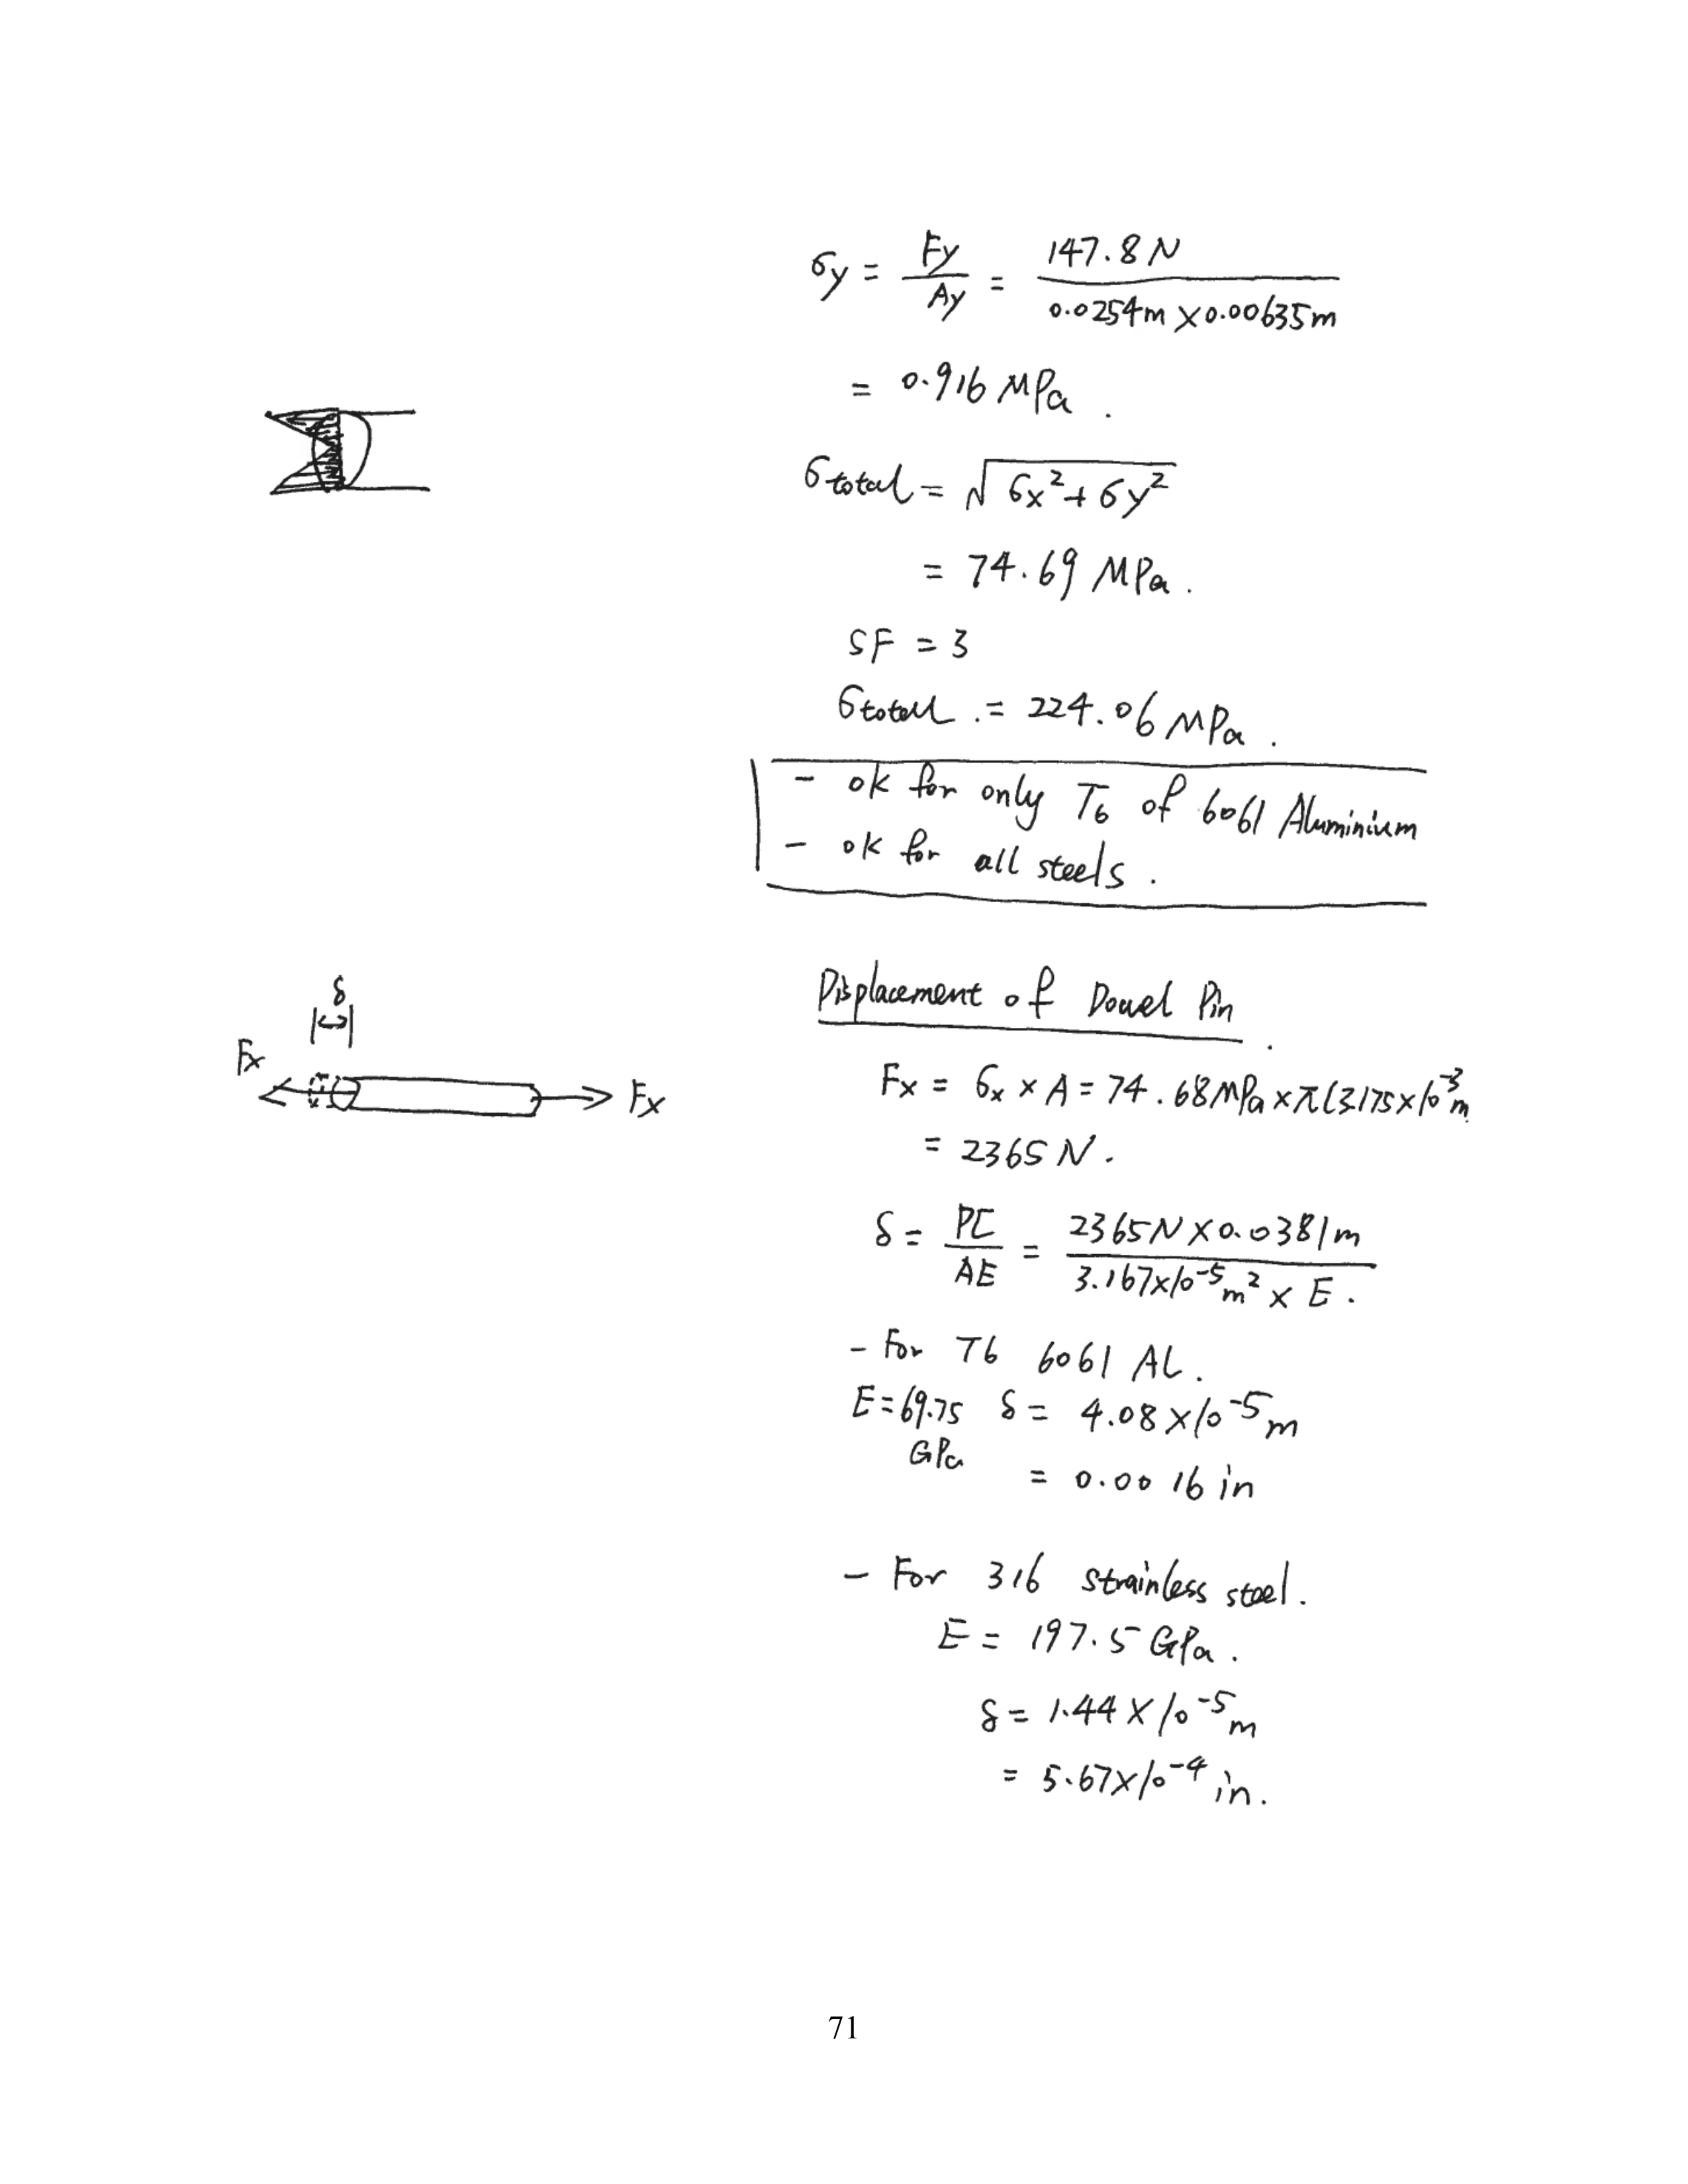 σy = Fy / Ay = 147.8 N / 0.0254m × 0.00635m
= 0.916 MPa .
σtotal = √ σx² + σy²
= 74.69 MPa .
SF = 3
σtotal . = 224.06 MPa .
- ok for only T6 of 6061 Aluminium
- ok for all steels .
δ
Fx
Fx
Displacement of Dowel Pin .
Fx = σx × A = 74.68 MPa × π (3.175 × 10⁻³ m
= 2365 N .
δ = PL / AE = 2365 N × 0.0381 m / 3.167 × 10⁻⁵ m² × E .
- For T6 6061 AL .
E = 69.75 δ = 4.08 × 10⁻⁵ m
GPa
= 0.0016 in
- For 316 strainless steel .
E = 197.5 GPa .
δ = 1.44 × 10⁻⁵ m
= 5.67 × 10⁻⁴ in .
71